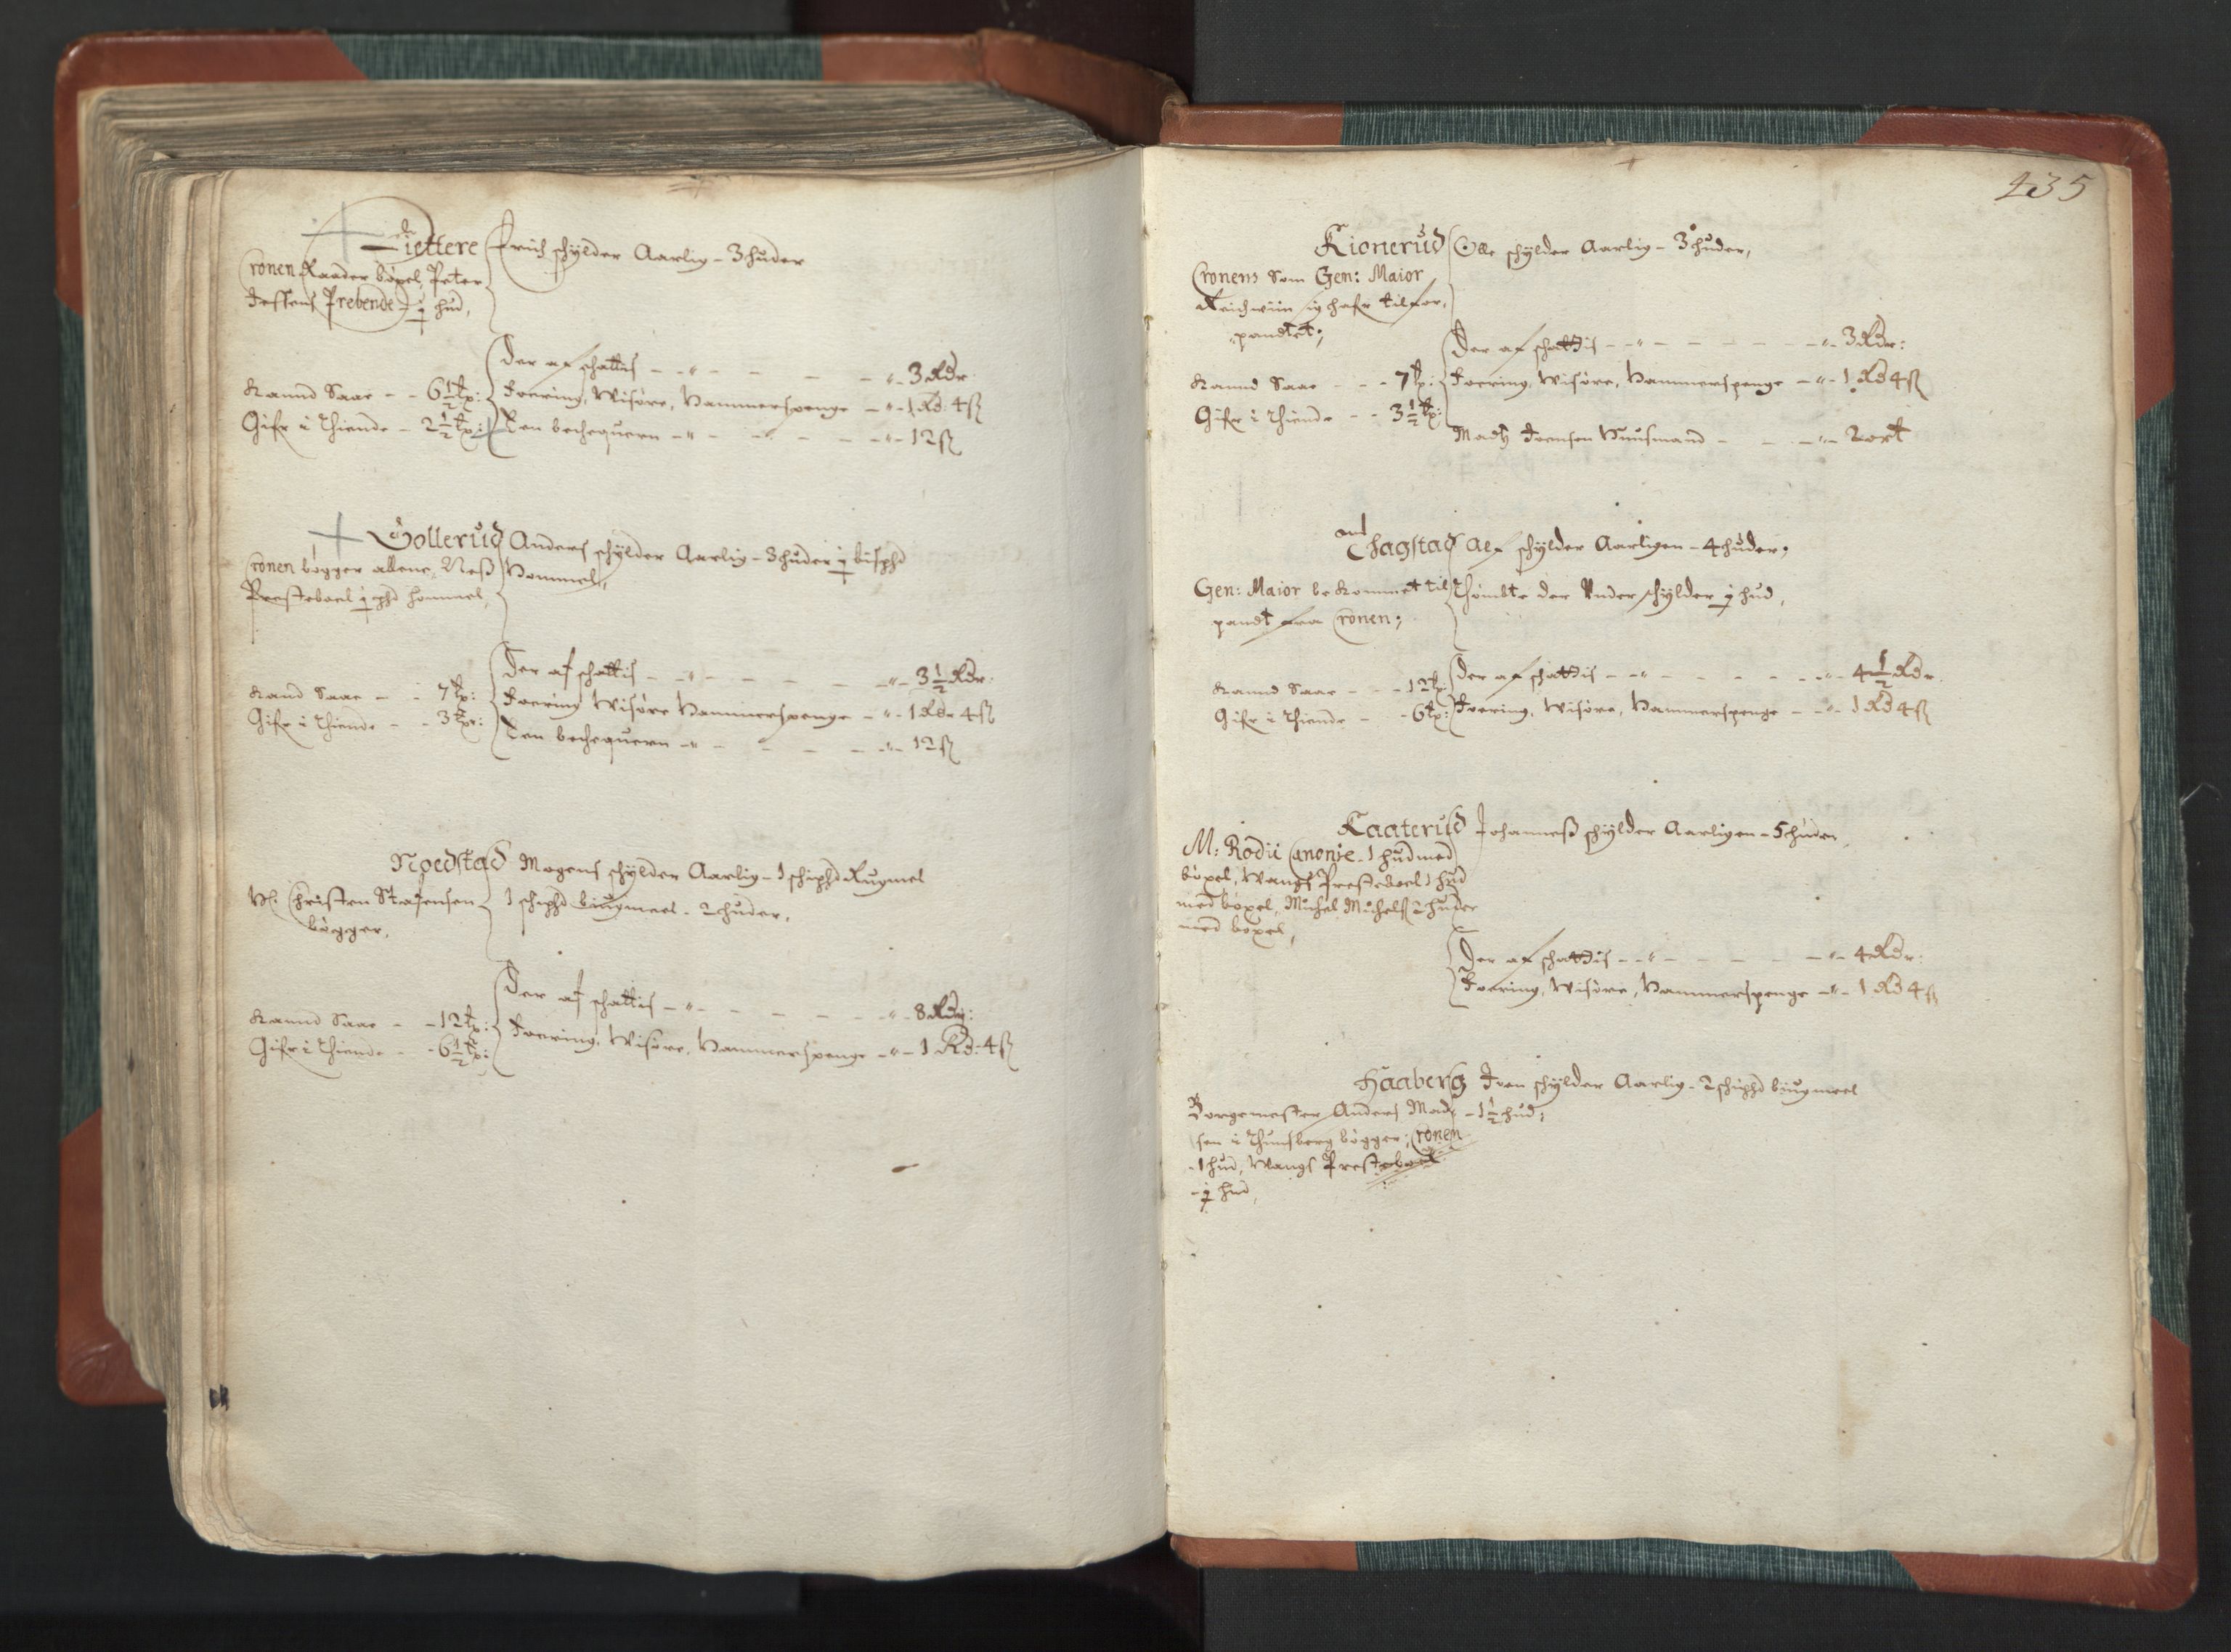 Tiettere Erich schylder Aarlig - 3 huder
Cronen Raader böxel, Peter
Jessens Prebende - ½ hud,
Der af schattis - 3 Rdr
Kannd Saae - 6½ tp: Foering, Wisöre, Hammerspenge - 1 Rd: 4 ß
Gifr i Thiende - 2½ tp: Een bechequern - 12 ß
Gollerud Anders schylder Aarlig - 3 huder ½ bisphd
Cronen bögger allene, Neß Hommel,
Prestebool ½ sphd hommel,
Der af schattis - 3½ Rdr.
Kand Saae - 7 tp: Foering Wisöre Hammerspenge - 1 Rdr 4 ß
Gifr i Thiende - 3 tpr: Een bechequern - 12 ß
Noedstad Mogens schylder Aarlig - 1 schiphd Rugmel
H: Christen Stafensen 1 schiphd biugmeel - 2 huder,
bögger,
Der af schattis - 8 Rdr:
Kannd Saae - 12 tp: Foering, Wisöre, Hammerspenge - 1 Rd: 4 ß
Gifr i Thiende - 6½ tp:
435
Kionerud Ole schylder Aarlig - 3 huder,
Cronens Som Gen: Maior
Reichwiin ig hafr til for,
pandtet;
Der af schattis - 3 Rdr:
Kannd Saae - 7 tp: Foering, Wisöre, Hammerspenge - 1 Rd 4 ß
Gifr i Thiende - 3½ tp:
Madtz Joensen Huusmand - 2 ort
Chagstad Alf schylder Aarligen - 4 huder;
Gen: Maior bekommet til Thömbte der Under schylder ½ hud,
pandt fra Cronen;
Der af schattis - 4½ Rdr.
Kannd Saae - 12 tp: Foering, Wisöre, Hammerspenge - 1 Rd 4 ß
Gifr i Thiende - 6 tp:
Kaaterud Johanneß schylder Aarligen - 5 huder
M: Rodii Canonie - 1 hud med
böxel, Wangs Prestebool 1 hud
med böxel, Michel Michelß 2 huder
med böxel,
Der af schattis - 4 Rdr:
Foering, Wisöre, Hammerspenge - 1 Rd 4 ß
Haaberg Iven schylder Aarlig - 2 schiphd biugmeel
Borgemester Anders Mad - 1½ hud;
sen i Thunsberg bögger; Cronen
- 1 hud, Wangs Prestebool
- ½ hud,